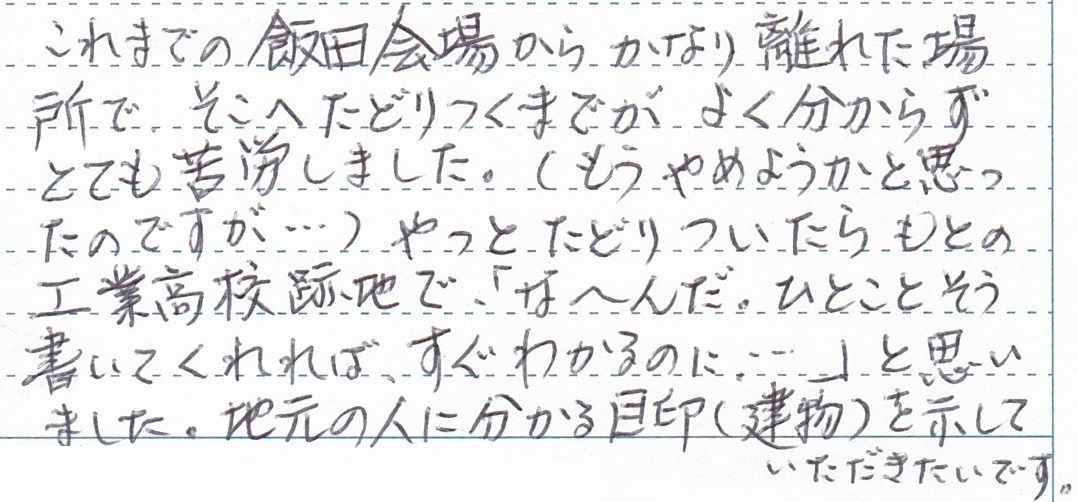 これまでの飯田会場からかなり離れた場
所で、そこへたどりつくまでが よく分からず
とても苦労しました。(もうやめようかと思っ
たのですが…)やっとたどりついたらもとの
工業高校跡地で、「な〜んだ。ひとことそう
書いてくれれば、すぐわかるのに…」と思い
ました。地元の人に分かる目印(建物)を示して
いただきたいです。